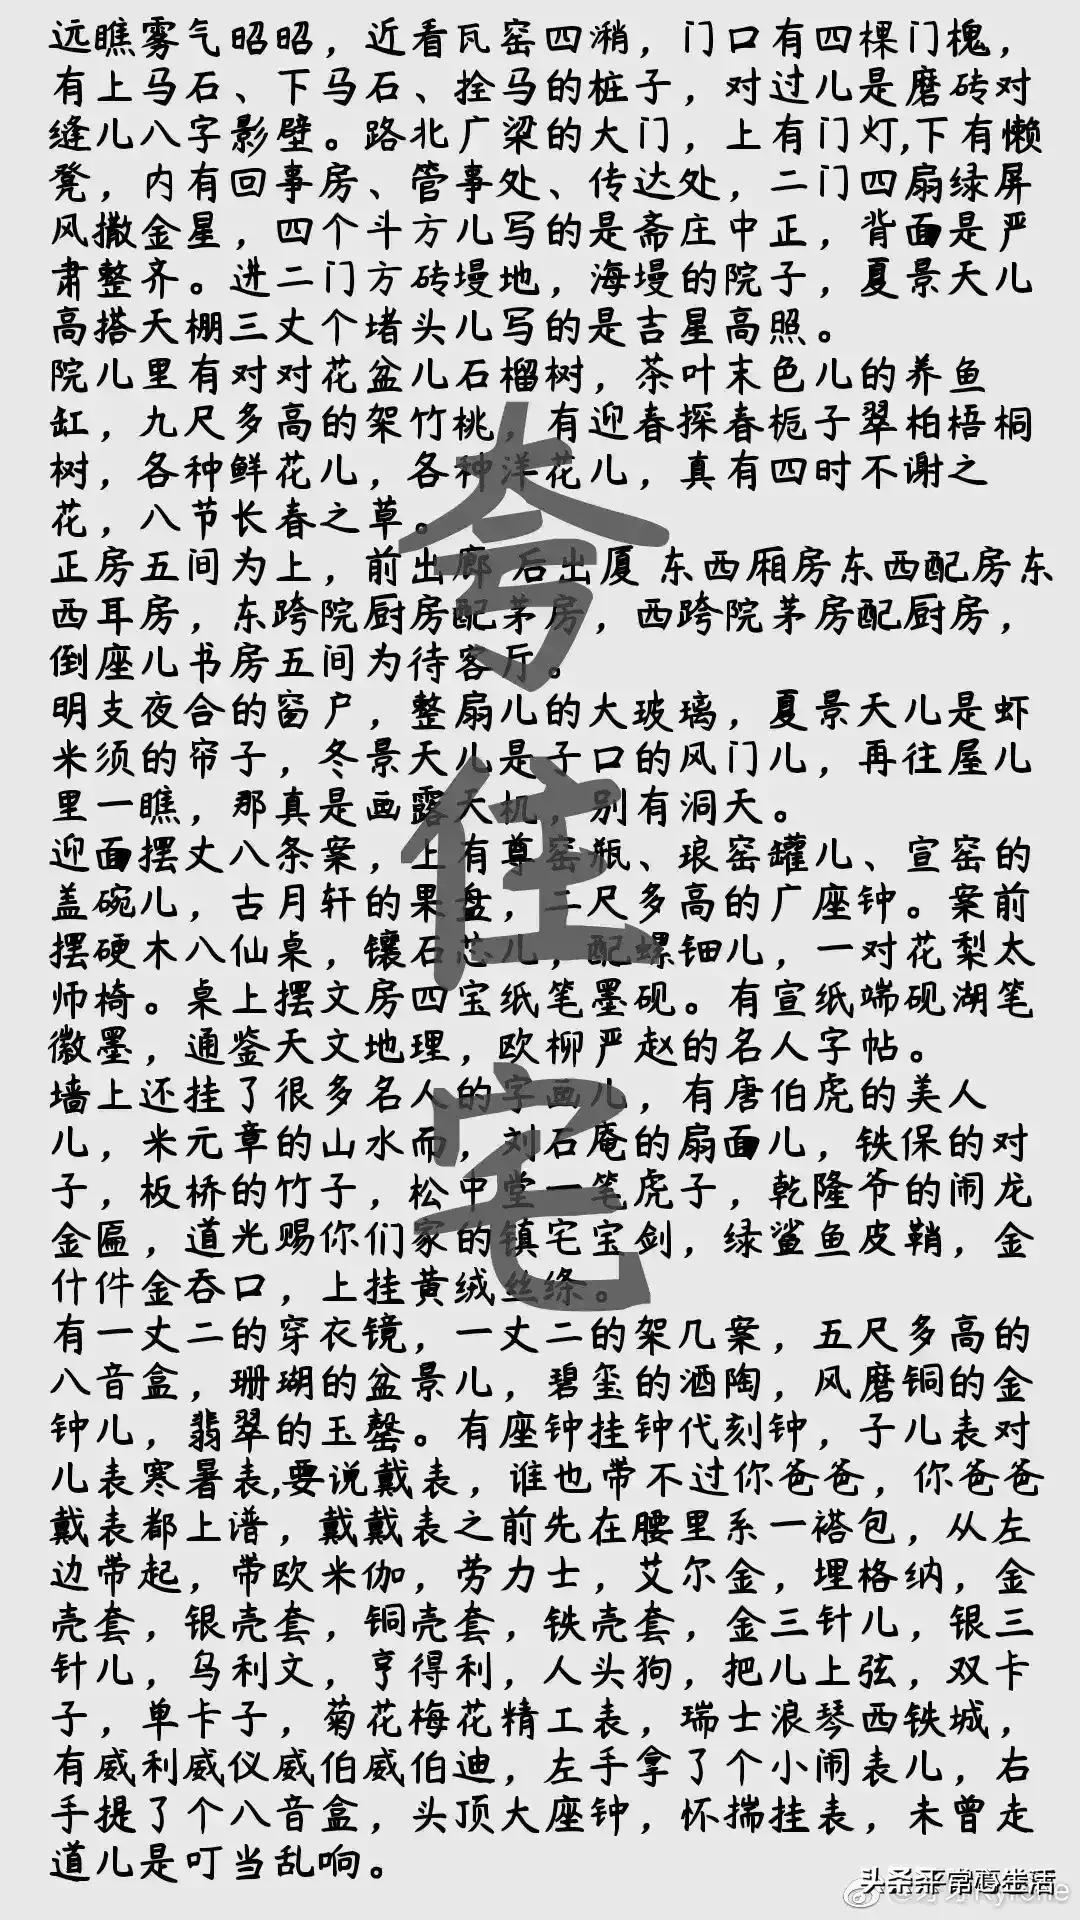 远瞧雾气昭昭，近看瓦窑四潲，门口有四棵门槐，
有上马石、下马石、拴马的桩子，对过儿是磨砖对
缝儿八字影壁。路北广梁的大门，上有门灯,下有懒
凳，内有回事房、管事处、传达处，二门四扇绿屏
风撒金星，四个斗方儿写的是斋庄中正，背面是严
肃整齐。进二门方砖墁地，海墁的院子，夏景天儿
高搭天棚三丈个堵头儿写的是吉星高照。
院儿里有对对花盆儿石榴树，茶叶末色儿的养鱼
缸，九尺多高的架竹桃，有迎春探春栀子翠柏梧桐
树，各种鲜花儿，各种洋花儿，真有四时不谢之
花，八节长春之草。
正房五间为上，前出廊 后出厦 东西厢房东西配房东
西耳房，东跨院厨房配茅房，西跨院茅房配厨房，
倒座儿书房五间为待客厅。
明支夜合的窗户，整扇儿的大玻璃，夏景天儿是虾
米须的帘子，冬景天儿是子口的风门儿，再往屋儿
里一瞧，那真是画露天机，别有洞天。
迎面摆丈八条案，上有尊窑瓶、琅窑罐儿、宣窑的
盖碗儿，古月轩的果盘，二尺多高的广座钟。案前
摆硬木八仙桌，镶石芯儿，配螺钿儿，一对花梨太
师椅。桌上摆文房四宝纸笔墨砚。有宣纸端砚湖笔
徽墨，通鉴天文地理，欧柳严赵的名人字帖。
墙上还挂了很多名人的字画儿，有唐伯虎的美人
儿，米元章的山水而，刘石庵的扇面儿，铁保的对
子，板桥的竹子，松中堂一笔虎子，乾隆爷的闹龙
金匾，道光赐你们家的镇宅宝剑，绿鲨鱼皮鞘，金
什件金吞口，上挂黄绒丝绦。
有一丈二的穿衣镜，一丈二的架几案，五尺多高的
八音盒，珊瑚的盆景儿，碧玺的酒陶，风磨铜的金
钟儿，翡翠的玉罄。有座钟挂钟代刻钟，子儿表对
儿表寒暑表,要说戴表，谁也带不过你爸爸，你爸爸
戴表都上谱，戴戴表之前先在腰里系一褡包，从左
边带起，带欧米伽，劳力士，艾尔金，埋格纳，金
壳套，银壳套，铜壳套，铁壳套，金三针儿，银三
针儿，乌利文，亨得利，人头狗，把儿上弦，双卡
子，单卡子，菊花梅花精工表，瑞士浪琴西铁城，
有威利威仪威伯威伯迪，左手拿了个小闹表儿，右
手提了个八音盒，头顶大座钟，怀揣挂表，未曾走
道儿是叮当乱响。
夸住宅
头条@平常心生活